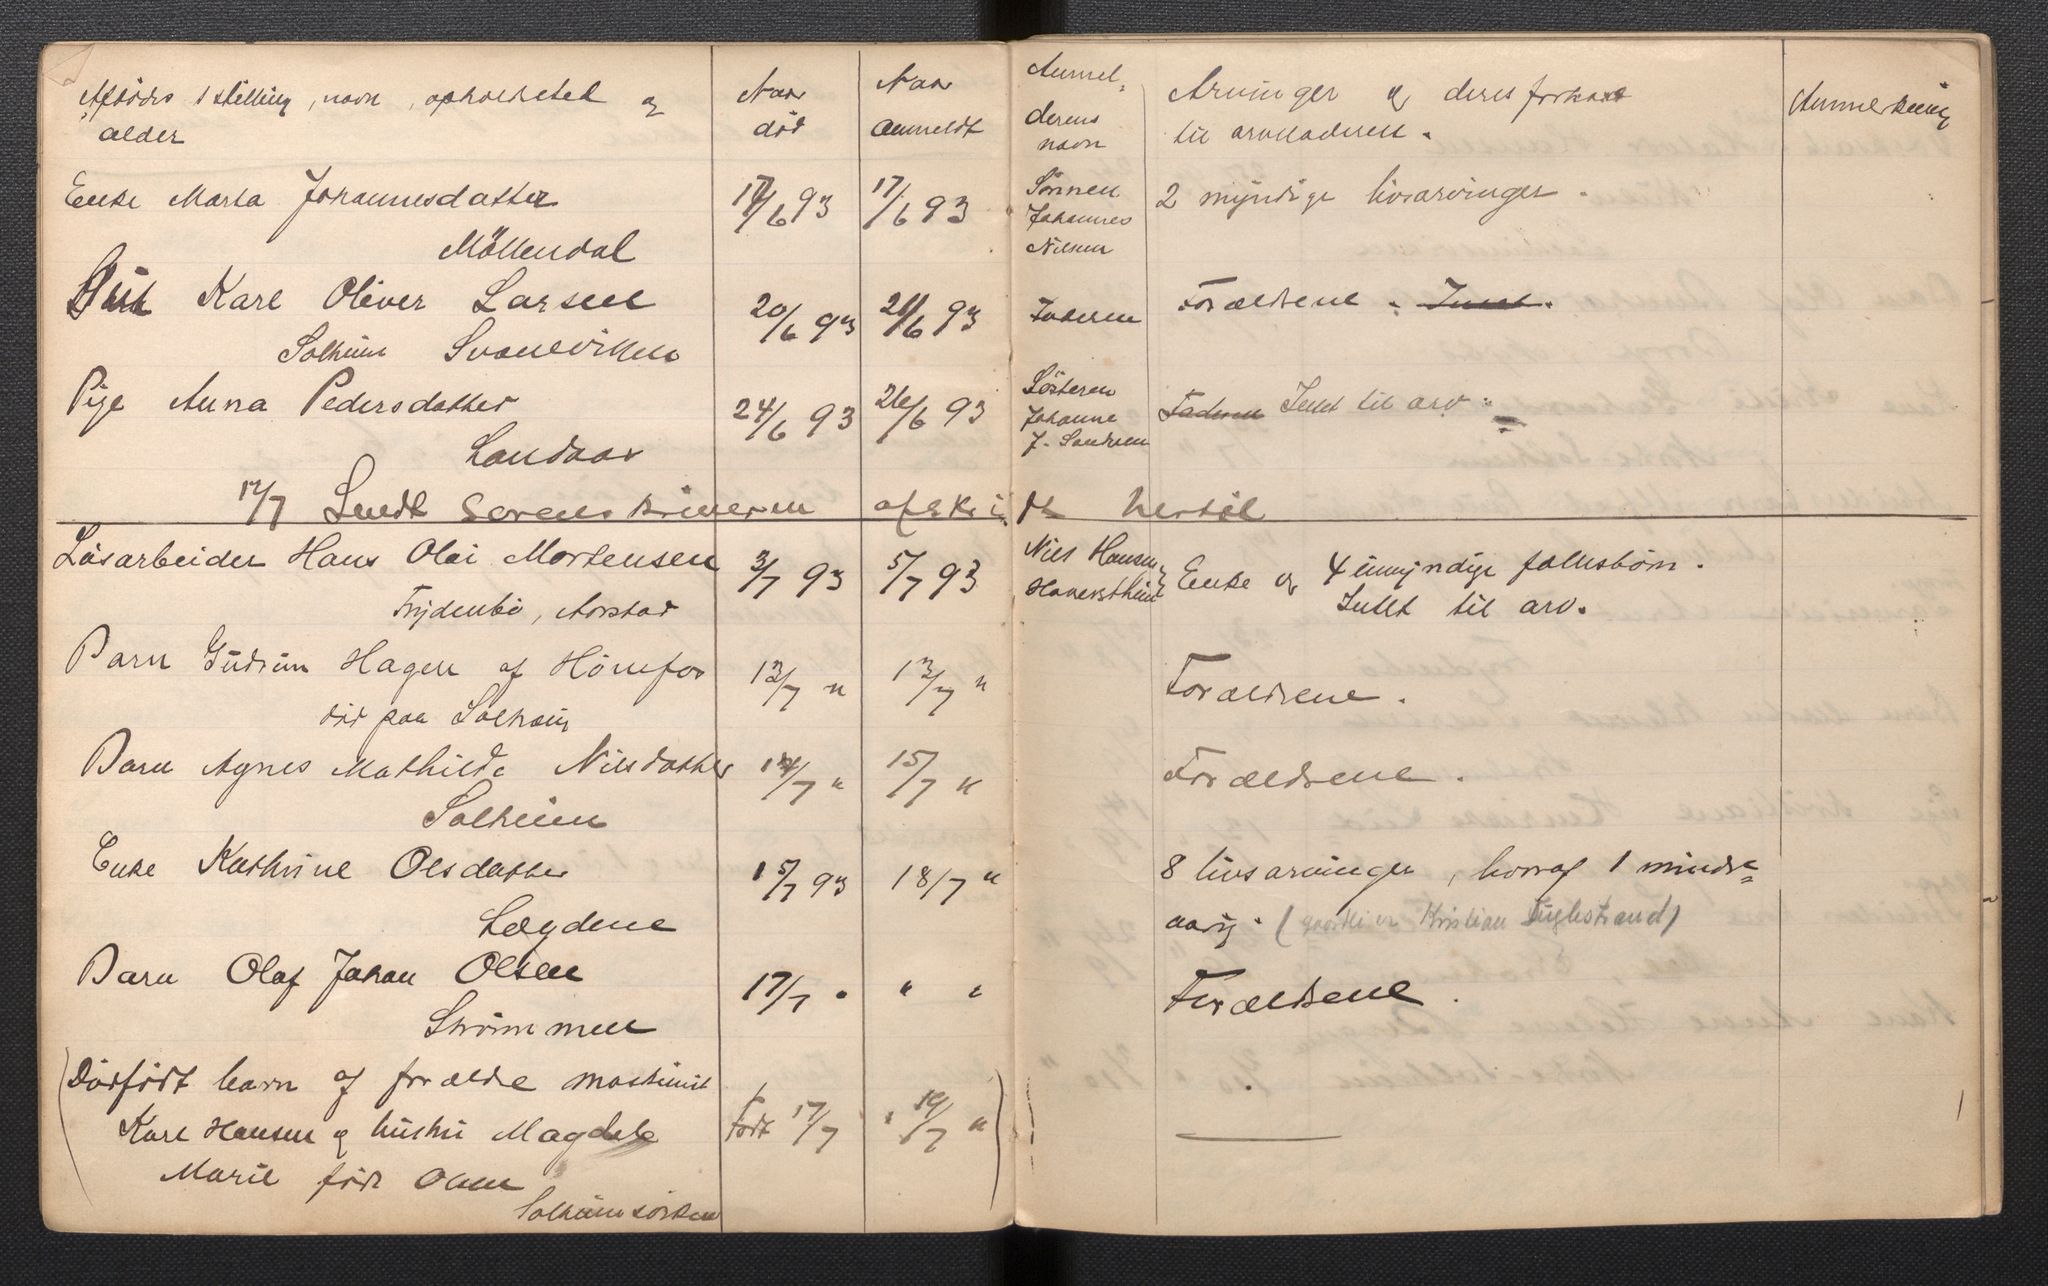 Afdødes stilling, navn, opholdssted og
alder
Naar
död
Naar
anmeldt
Anmel-
derens
navn
Arvinger og deres forhold
til arveladeren.
Anmerkning
Enke Marta Johannesdatter
Möllendal
17/6 93
17/6 93
Sönnen
Johannes
Nilsen
2 myndige livsarvinger.
Karl Oliver Larsen
Solheim Svaneviken
20/6 93
21/6 93
Faderen
Forældrene. Intet.
Pige Anna Pedersdatter
Landaas
24/6 93
26/6 93
Søsteren
Johanne
J. Sandven
Faderen Intet til arv.
12/7 Sendt Sorenskriveren afskrift hertil
Løsarbeider Hans Olai Mortensen
Frydenbö, Aarstad
3/7 93
5/7 93
Nils Hansen
Enke og 4 umyndige fællesbörn.
Intet til arv.
Barn Gudrun Hagen af Hönefos
död paa Solheim
12/7 "
13/7 "
Forældrene.
Barn Agnes Mathilde Nilsdatter
Solheim
14/7 "
15/7 "
Forældrene.
Enke Kathrine Olsdatter
Lægdene
15/7 93
18/7 "
8 livsarvinger, hvoraf 1 mindre-
aarig. ( Kristian Fuglestrand)
Barn Olaf Johan Olsen
Strømmen
17/7 "
" "
Forældrene.
(Dödfödt barn af forældre maskinist
Karl Hansen og hustru Magdale
Marie född Olsen
Solheimsviken
Född 17/7
" 19/7 " )